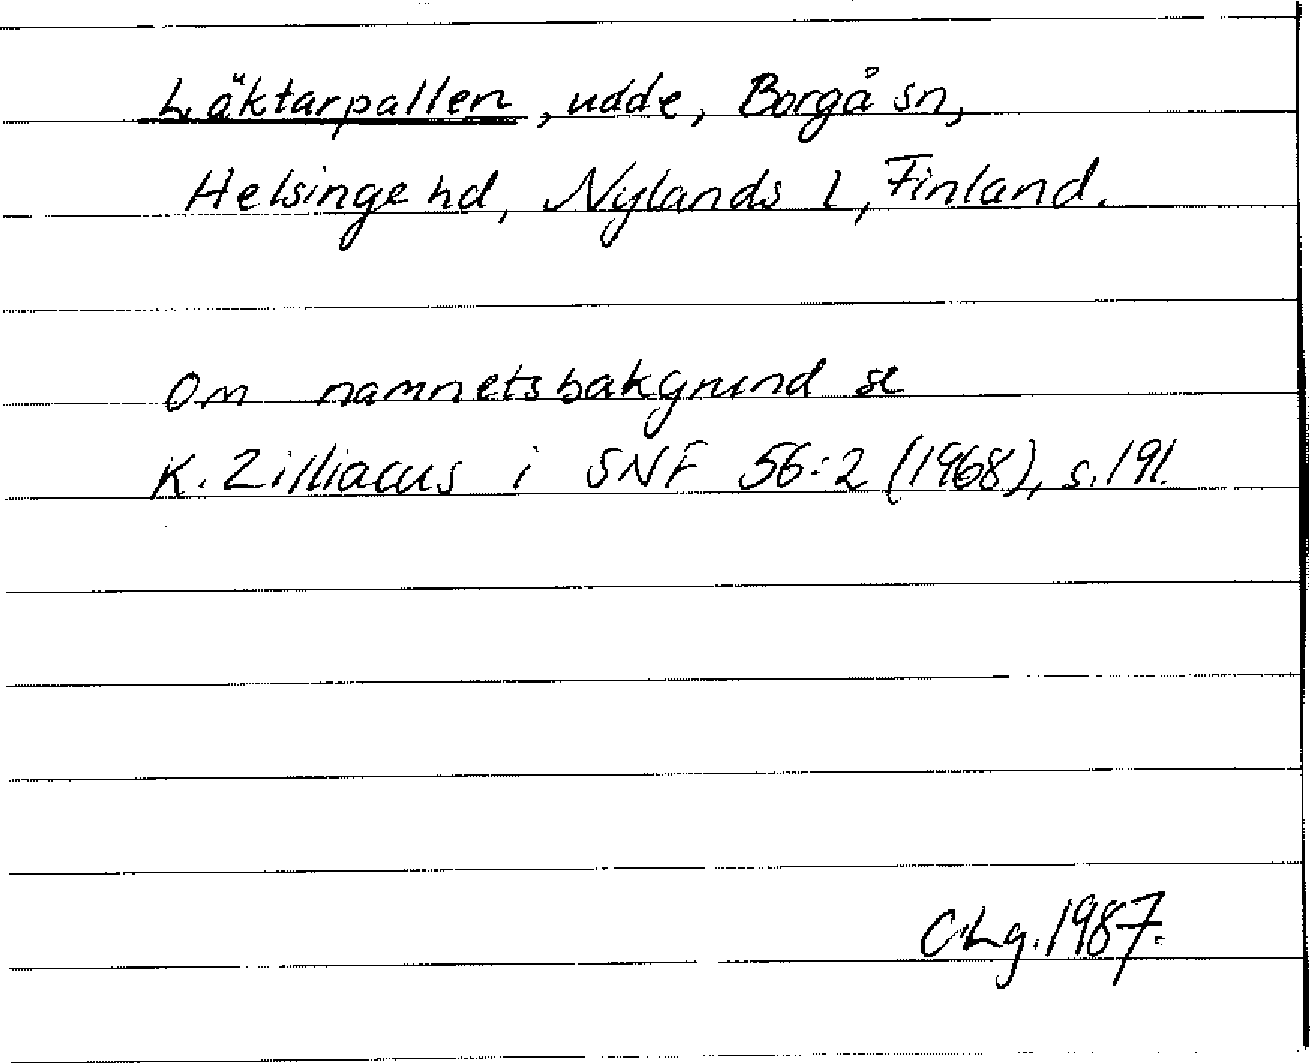 Läktarpallen, udde, Borgå sn,
Helsinge hd, Nylands l, Finland.
Om namnets bakgrund se
K. Zilliacus i SNF 56:2 (1968), s. 191.
C.Lg. 1987.